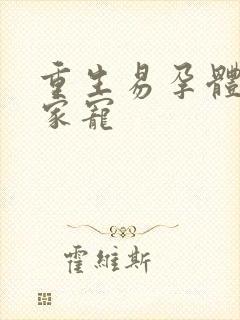 重生易孕體
家寵
霍維斯